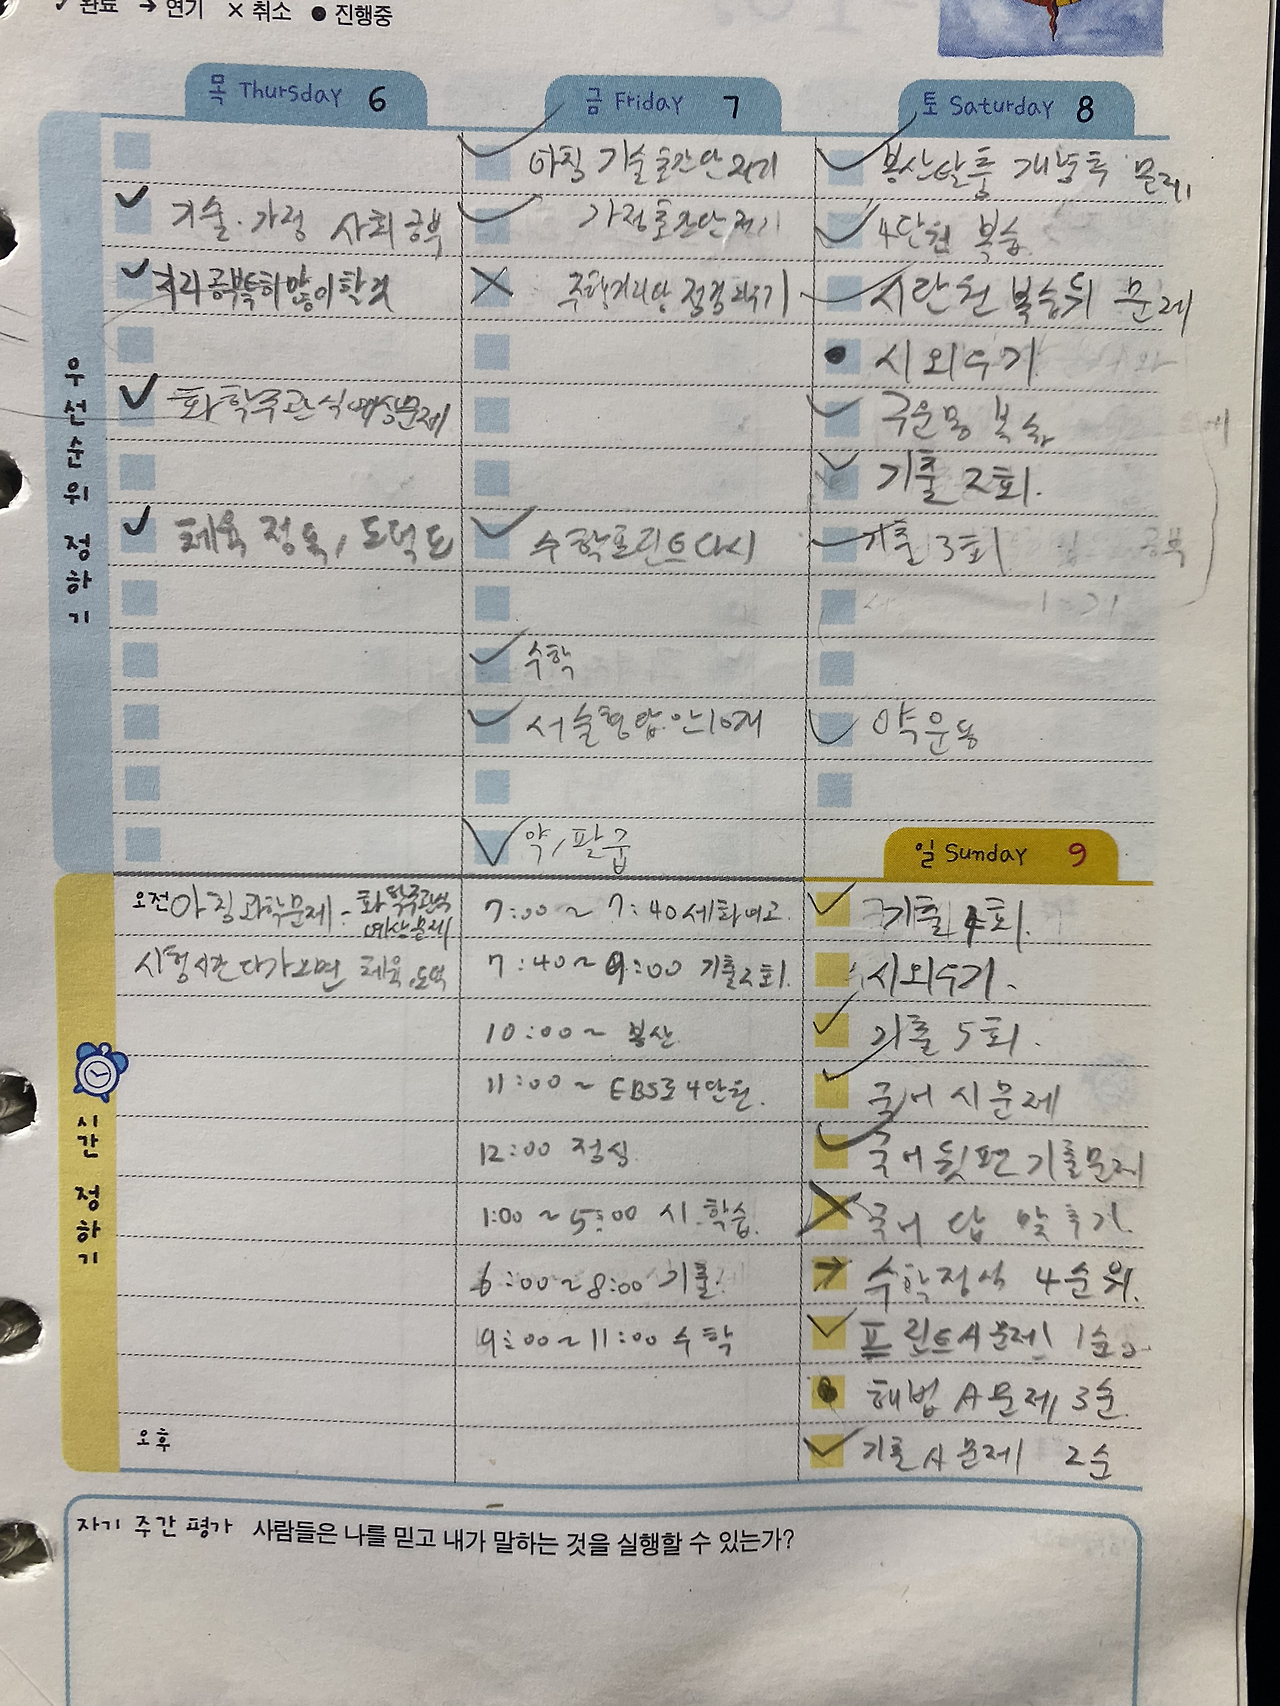 ✓ 완료 → 연기 × 취소 ● 진행중
목 Thursday 6
기술·가정 사회 공부
지리공부특히많이할것
화학주관식예상문제
체육 정독, 도덕도
금 Friday 7
아침 기술 훑고
가정
수학프린트다시
수학
서술형답안10개
약/팔굽
토 Saturday 8
봉산탈춤 개념쪽 문제
4단원 복습
시단원 복습뒤 문제
시외우기
구운몽 복습
기출 2회.
기출 3회
약 운동
우선순위 정하기
시간 정하기
오전 아침과학문제 - 화학주관식 예상문제
시험시간다가오면 체육,도덕
오후
7:00 ~ 7:40 세화여고.
7:40 ~ 9:00 기출2회.
10:00 ~ 봉산
11:00 ~ EBS로 4단원.
12:00 점심
1:00 ~ 5:00 시 학습.
6:00 ~ 8:00 기출.
9:00 ~ 11:00 수학
일 Sunday 9
기출 4회.
시외우기.
기출 5회.
국어 시문제
국어 뒷편 기출문제
국어 답 맞추기.
수학정석 4순위.
프린트A문제 1순위
해법 A문제 3순.
기출A문제 2순
자기 주간 평가 사람들은 나를 믿고 내가 말하는 것을 실행할 수 있는가?